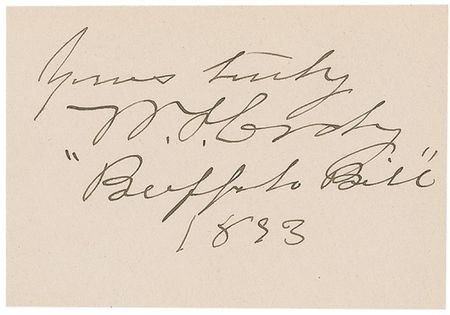 Yours truly
W. F. Cody
"Buffalo Bill"
1893